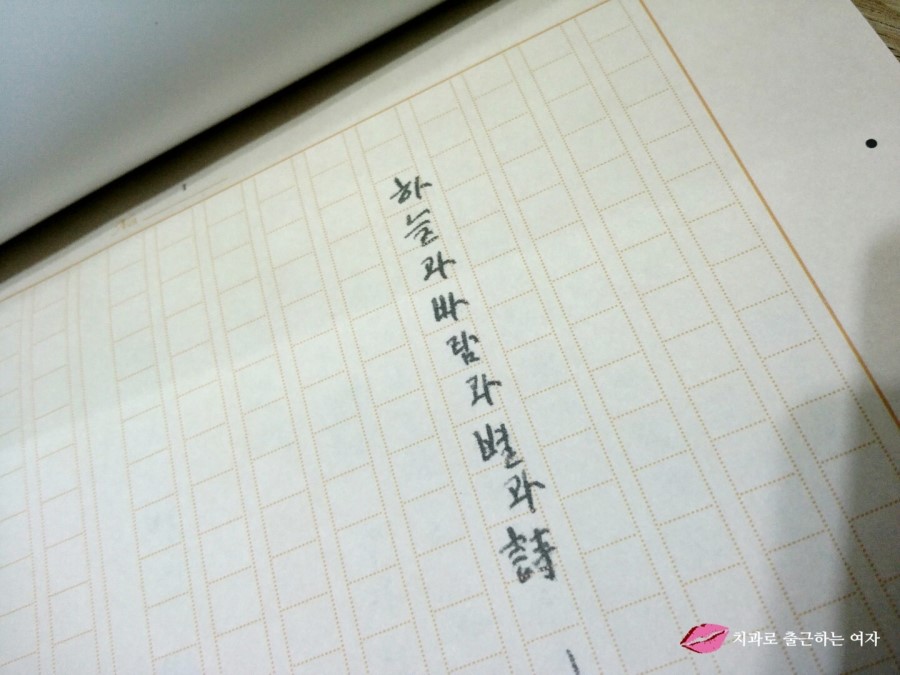 하늘과바람과별과詩
치과로 출근하는 여자